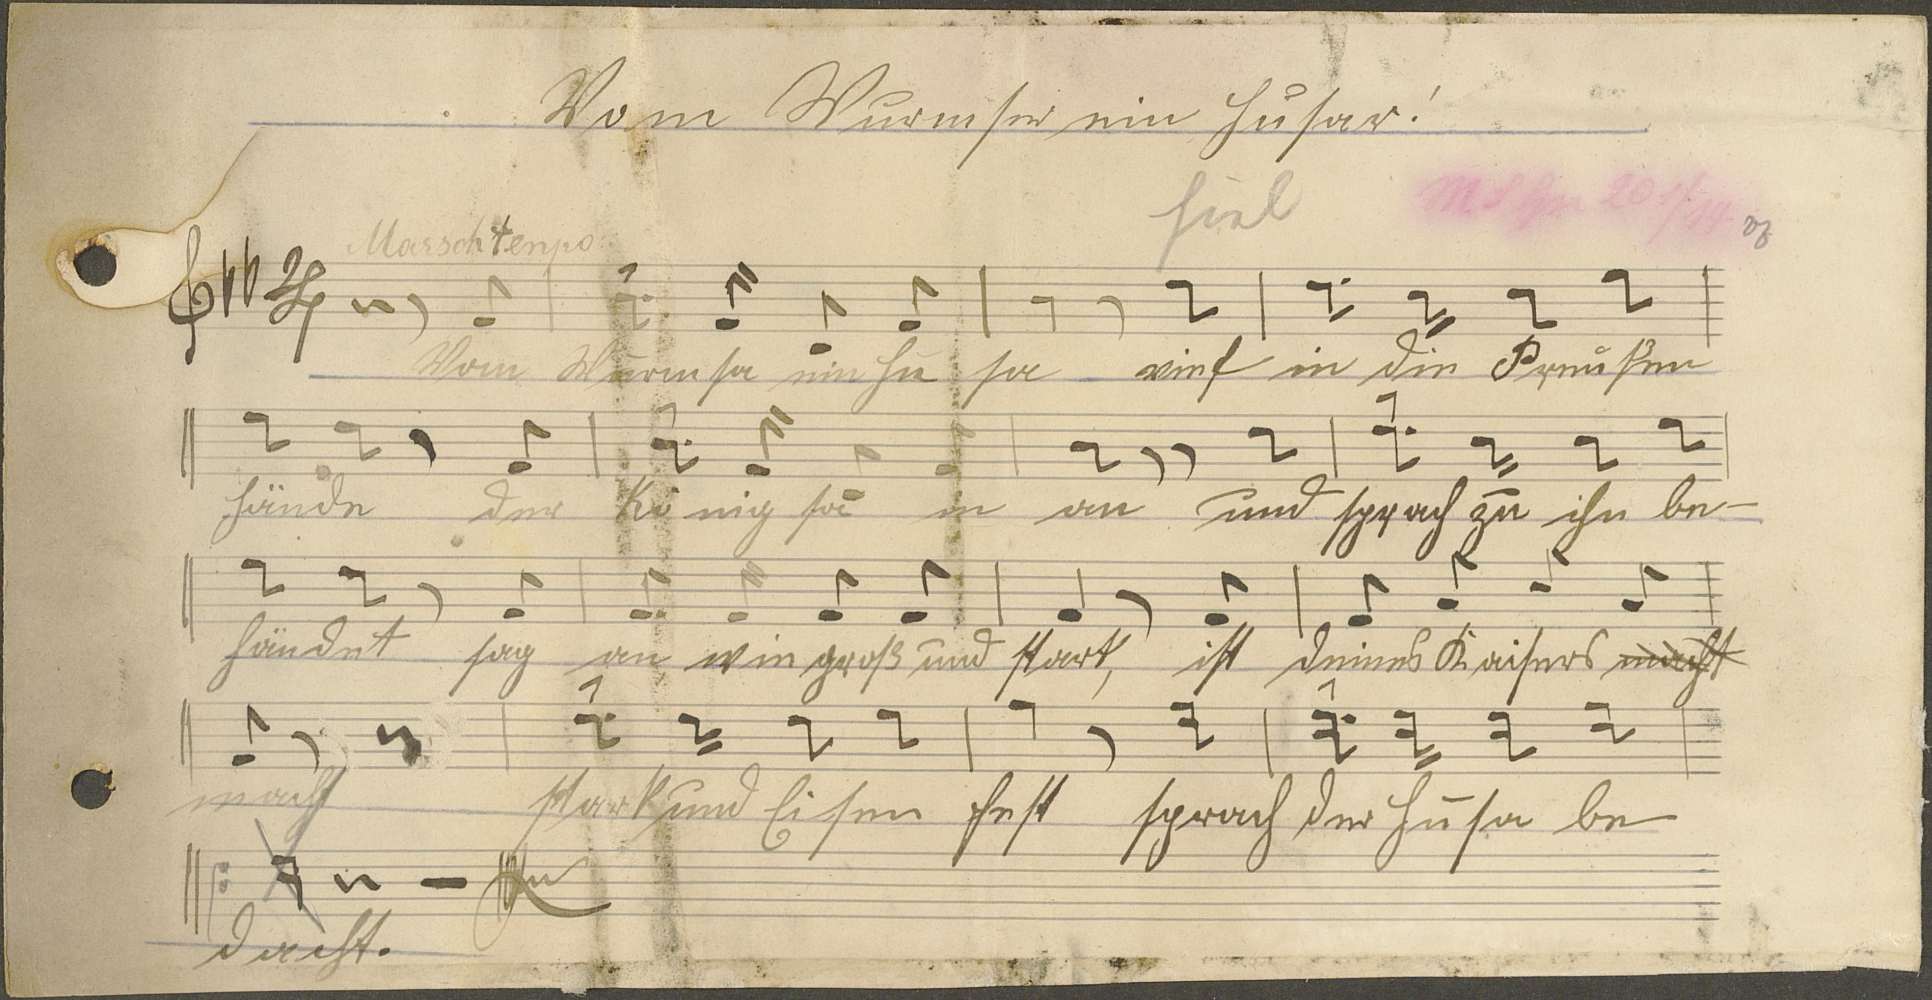 Vom Wurmser ein Husar!
fiel
Marschtempo
Vom Wurmsa ein Hu sa rief in die Preußen
hände der Kö nig sa in an und sprach zu ihn be-
händet sag an wie groß und stark, ist deines Kaisers macht
mach stark und Eisen fest sprach der Husa be
dacht.